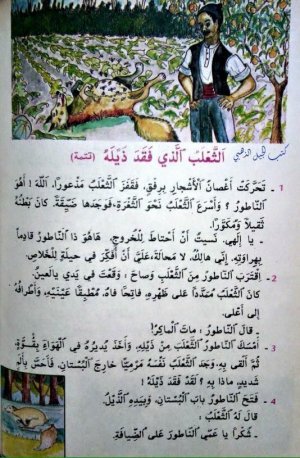 كتب الجيل الذهبي
اَلثَّعْلَبُ ٱلَّذِي فَقَدَ ذَيْلَهُ (تتمة)
1 - تَحَرَّكَتْ أَغْصَانُ ٱلْأَشْجَارِ بِرِفْقٍ، فَقَفَزَ ٱلثَّعْلَبُ مَذْعُورًا. اَللهَ ! أَهُوَ
اَلنَّاطُورُ ؟ وَأَسْرَعَ ٱلثَّعْلَبُ نَحْوَ ٱلثُّغْرَةِ، فَوَجَدَهَا ضَيِّقَةً. كَانَ بَطْنُهُ
ثَقِيلًا وَمُكَوَّرًا.
- يَا إِلَهِي، نَسِيتُ أَنْ أَحْتَاطَ .لِلْخُرُوجِ. هَاهُوَ ذَا ٱلنَّاطُورُ قَادِمًا
بِهِرَاوَتِهِ. إِنِّي هَالِكٌ، لَا مَحَالَةَ، عَلَيَّ أَنْ أُفَكِّرَ فِي حِيلَةٍ لِلْخَلَاصِ.
2 - اِقْتَرَبَ ٱلنَّاطُورُ مِنَ ٱلثَّعْلَبِ وَصَاحَ : وَقَعْتَ فِي يَدِي يَالَعِينُ.
كَانَ ٱلثَّعْلَبُ مُمَدَّدًا عَلَى ظَهْرِهِ، فَاتِحًا فَاهُ، مُطْبِقًا عَيْنَيْهِ، وَأَطْرَافُهُ
إِلَى أَعْلَى.
- قَالَ ٱلنَّاطُورُ : مَاتَ ٱلْمَاكِرُ!
3 - أَمْسَكَ ٱلنَّاطُورُ ٱلثَّعْلَبَ مِنْ ذَيْلِهِ، وَأَخَذَ يُدِيرُهُ فِي ٱلْهَوَاءِ بِقُوَّةٍ،
ثُمَّ أَلْقَى بِهِ. وَجَدَ ٱلثَّعْلَبُ نَفْسَهُ مَرْمِيًّا خَارِجَ ٱلْبُسْتَانِ. فَأَحَسَّ بِأَلَمٍ
شَدِيدٍ. مَاذَا بِهِ ؟ لَقَدْ فَقَدَ ذَيْلَهُ !
4 - فَتَحَ ٱلنَّاطُورُ بَابَ ٱلْبُسْتَانِ، وَبِيَدِهِ ٱلذَّيْلُ.
قَالَ لَهُ ٱلثَّعْلَبُ :
- شُكْرًا يَا عَمِّي ٱلنَّاطُورَ عَلَى ٱلضِّيَافَةِ.